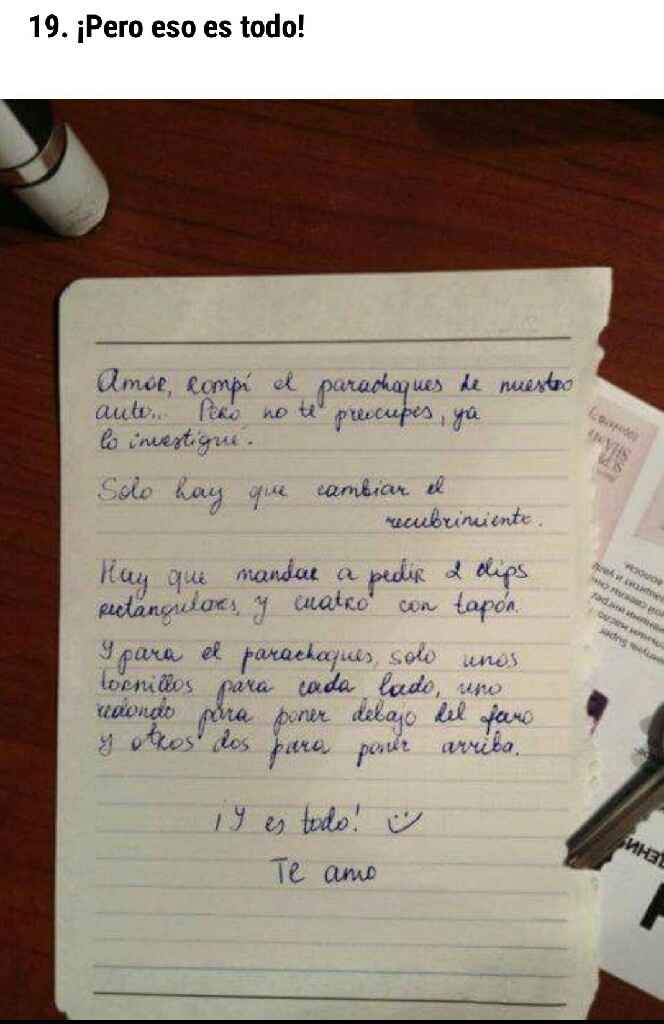 19. ¡Pero eso es todo!
Amor, rompí el parachoques de nuestro
auto... Pero no te preocupes, ya
lo investigué.
Solo hay que cambiar el
recubrimiento.
Hay que mandar a pedir 2 clips
rectangulares, y cuatro con tapón.
Y para el parachoques, solo unos
tornillos para cada lado, uno
redondo para poner debajo del faro
y otros dos para poner arriba.
¡Y es todo!
Te amo